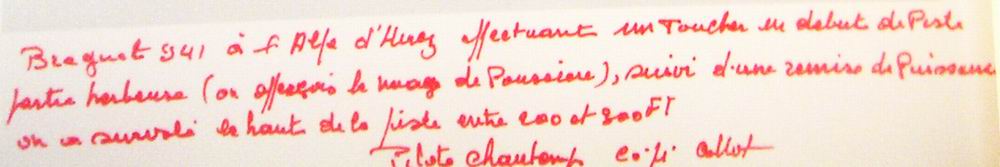 Breguet 941 à l'Alpe d'Huez effectuant un Toucher en debut de Piste
partie herbeuse (on aperçois le nuage de Poussiere), suivi d'une remise de Puissance
on a survolé le haut de la piste entre 200 et 300 FT
Pilote Chautemps